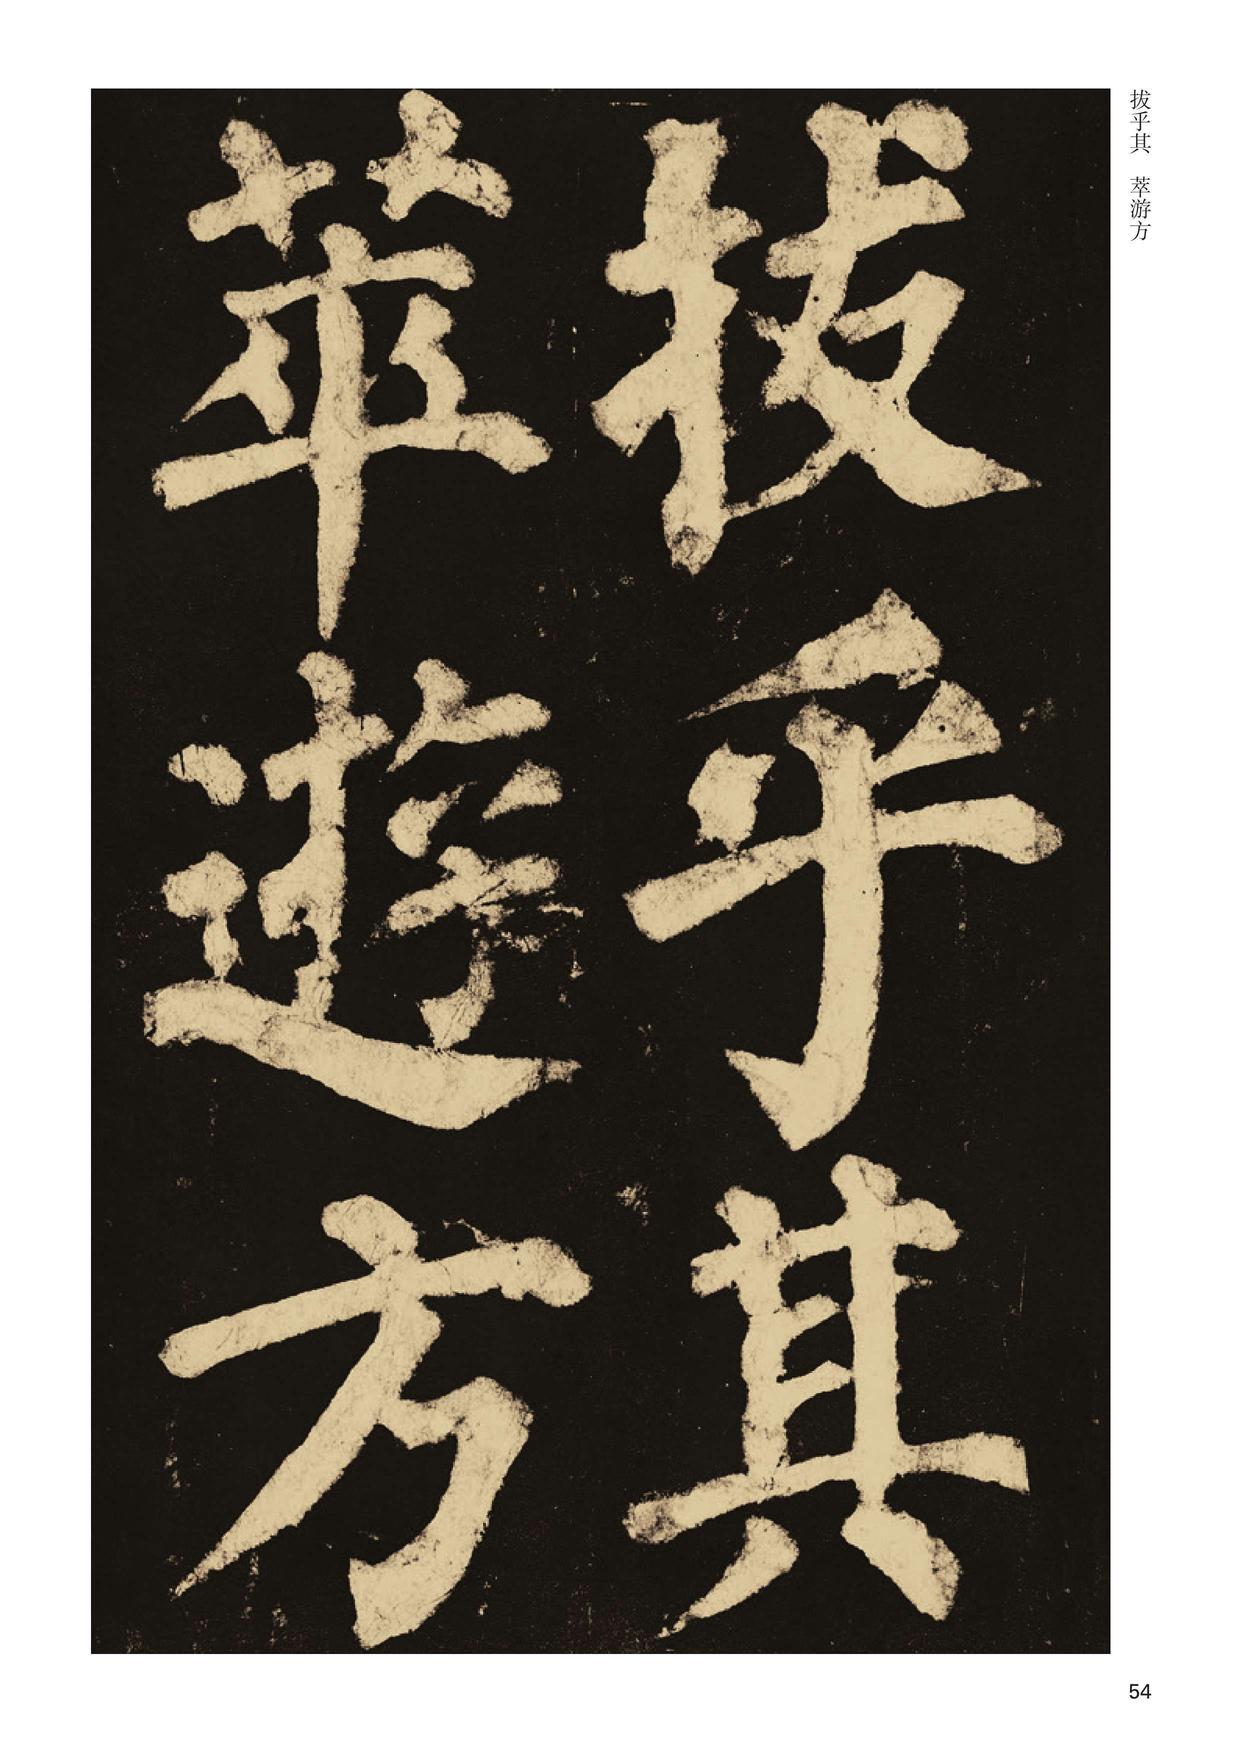 拔乎其
萃遊方
拔乎其 萃游方
54